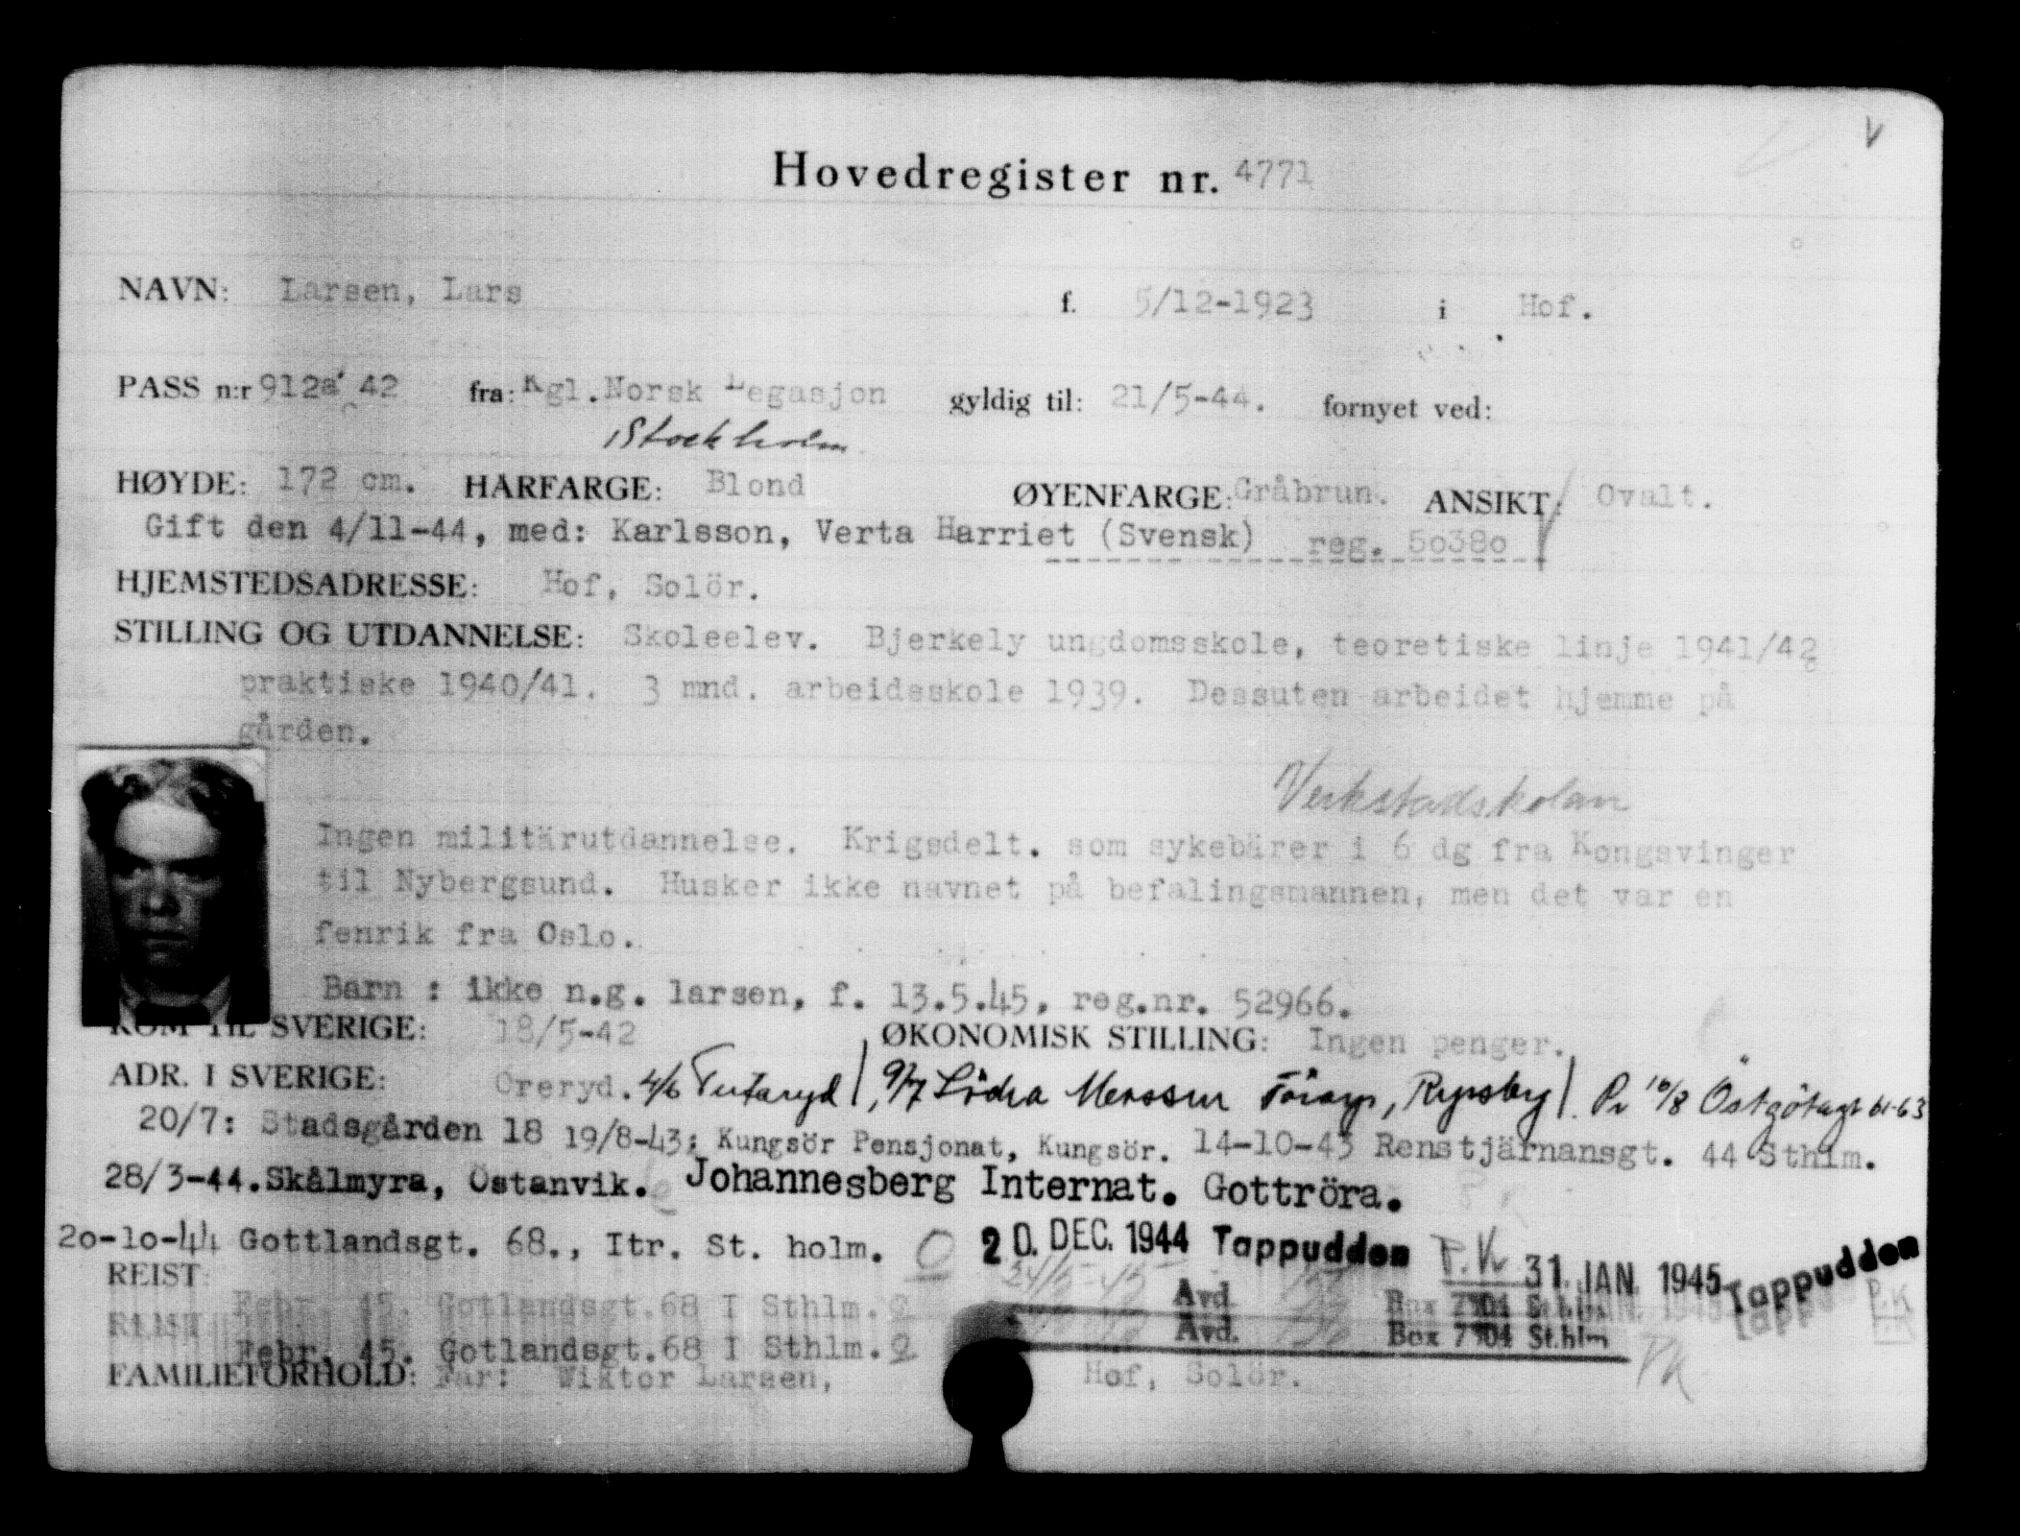 Hovedregister nr. 4771
NAVN: Larsen, Lars f. 5/12-1923 i Hof.
PASS n:r 912a 42 fra: Kgl. Norsk Legasjon gyldig til: 21/5-44. fornyet ved:
Stockholm
HØYDE: 172 cm. HÅRFARGE: Blond ØYENFARGE: Gråbrun. ANSIKT: Ovalt.
Gift den 4/11-44, med: Karlsson, Verta Harriet (Svensk) reg. 5o38o
HJEMSTEDSADRESSE: Hof, Solör.
STILLING OG UTDANNELSE: Skoleelev. Bjerkely ungdomsskole, teoretiske linje 1941/42
praktiske 1940/41. 3 mnd. arbeidsskole 1939. Dessuten arbeidet hjemme på
gården.
Verkstadskolan
Ingen militärutdannelse. Krigsdelt. som sykebärer i 6 dg fra Kongsvinger
til Nybergsund. Husker ikke navnet på befalingsmannen, men det var en
fenrik fra Oslo.
Barn : ikke n.g. larsen, f. 13.5.45, reg.nr. 52966.
KOM TIL SVERIGE: 18/5-42 ØKONOMISK STILLING: Ingen penger.
ADR. I SVERIGE: Öreryd. 4/6 Tutaryd, 9/7 Södra Ryssby. Pr 10/8 Östgötagt 61-63
20/7: Stadsgården 18 19/8-43: Kungsör Pensjonat, Kungsör. 14-10-43 Renstjärnansgt. 44 Sthlm.
28/3-44. Skålmyra, Östanvik. Johannesberg Internat. Gottröra.
2o-1o-44 Gottlandsgt. 68., Itr. St. holm. 20. DEC. 1944 Tappudden P.K 31. JAN. 1945 Tappudden
REIST: 24/5-45
Febr. 45. Gotlandsgt.68 I Sthlm. Avd Box 7304 St.hlm P.K
Febr. 45. Gotlandsgt.68 I Sthlm. Avd. Box 7304 St.hlm PK
FAMILIEFORHOLD: Far: Wiktor Larsen, Hof, Solör.